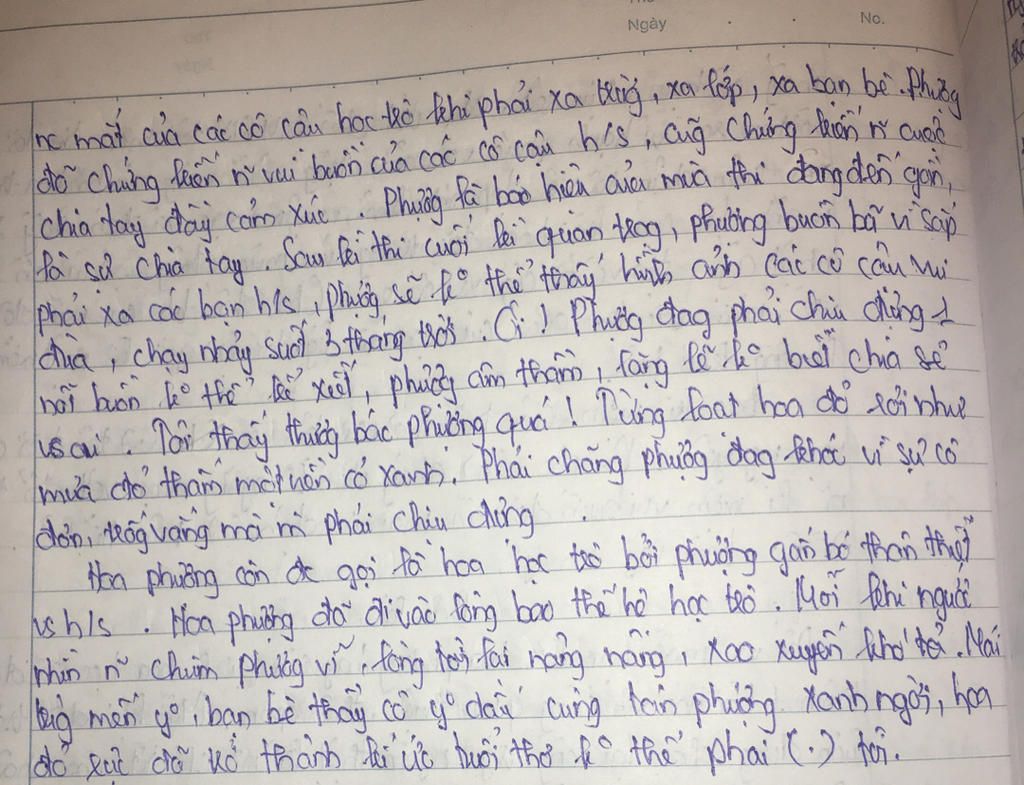 Ngày . . No.
nc mắt của các cô cậu học trò khi phải xa trừg, xa lớp, xa bạn bè. Phượg
đã chứng kiến n~ vui buồn của các cô cậu h/s, cũg chứng kiến n~ cuộc
chia tay đầy cảm xúc. Phượg là báo hiệu của mùa thi đang đến gần,
là sự chia tay. Sau kì thi cuối kì quan trọg, phường buồn bã vì sắp
phải xa các bạn h/s, phượg sẽ k° thể thấy hình ảnh các cô cậu vui
đùa, chạy nhảy suốt 3 tháng trời. Ôi! Phượg đag phải chịu đựng 1
nỗi buồn k° thể kể xiết, phượg âm thầm, lặng lẽ k° biết chia sẻ
vs ai. Tôi thấy thườg bác phượng quá! Từng loạt hoa đỏ rơi như
mưa đỏ thắm một nền cỏ xanh. Phải chăng phượg đag khóc vì sự cô
đơn, trốg vắng mà m phải chịu đựng.
Hoa phường còn đc gọi là hoa học trò bởi phượng gắn bó thân thiết
vs h/s. Hoa phượng đã đi vào lòng bao thế hệ học trò. Mỗi khi người
nhìn n~ chùm phượg vĩ, lòng tôi lại nâng nâng, xao xuyến khó tả. Mái
trừg mến y°, bạn bè thầy cô y° dấu cùng tán phượng xanh ngời, hoa
đỏ rực đã trở thành kí ức tuổi thơ k° thể phai (.) tôi.